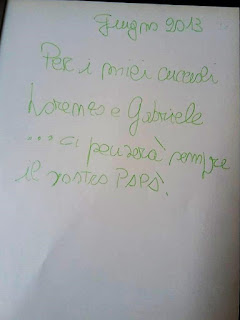 Giugno 2013
Per i miei cuccioli
Lorenzo e Gabriele
... ci penserà sempre
il vostro PAPÀ.